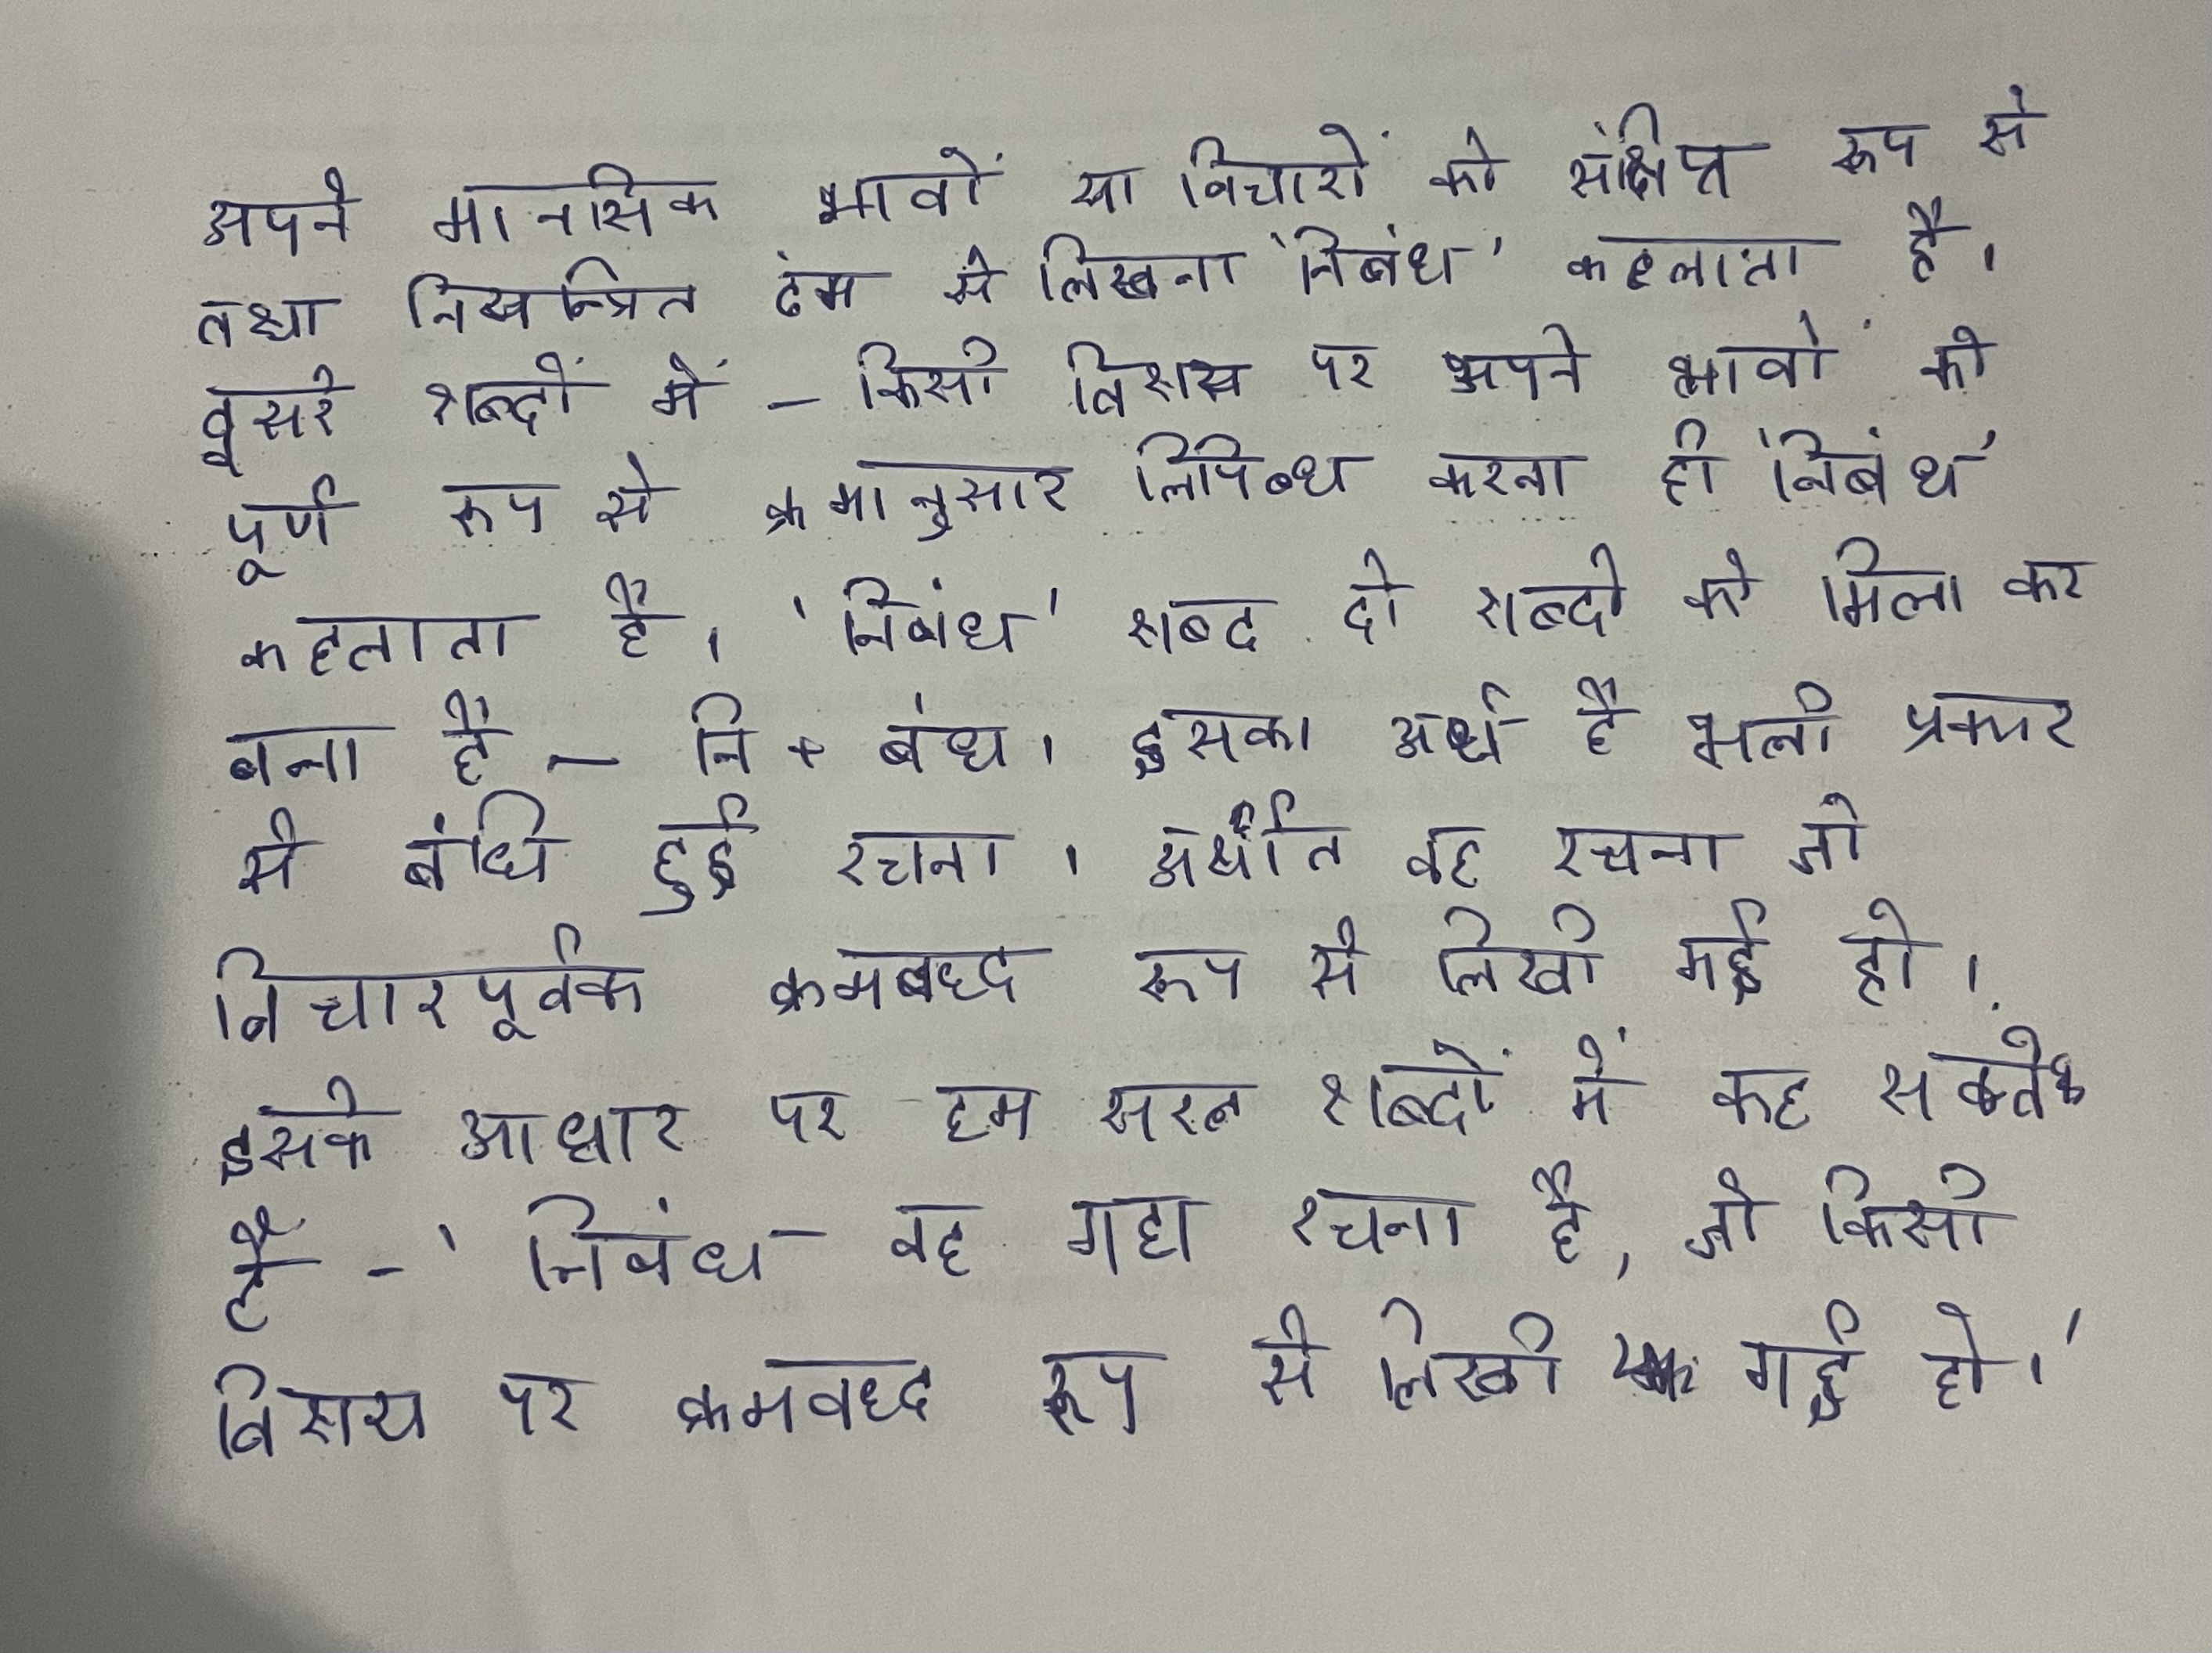 अपने मानसिक भावों या विचारों को संक्षिप्त रूप से
तथा नियन्त्रित ढंग से लिखना 'निबंध' कहलाता है।
दूसरे शब्दों में - किसी विशय पर अपने भावों को
पूर्ण रूप से क्रमानुसार लिपिब्ध करना ही 'निबंध'
कहलाता है। 'निबंध' शब्द दो शब्दो को मिला कर
बना है - नि + बंध। इसका अर्थ है भली प्रकार
से बंधि हुई रचना। अर्थात वह रचना जो
विचारपूर्वक क्रमबध्द रूप से लिखी गई हो।
इसके आधार पर हम सरल शब्दों में कह सकते
है - 'निबंध - वह गद्य रचना है, जो किसी
विशय पर क्रमवध्द रूप से लिखी गई हो।'